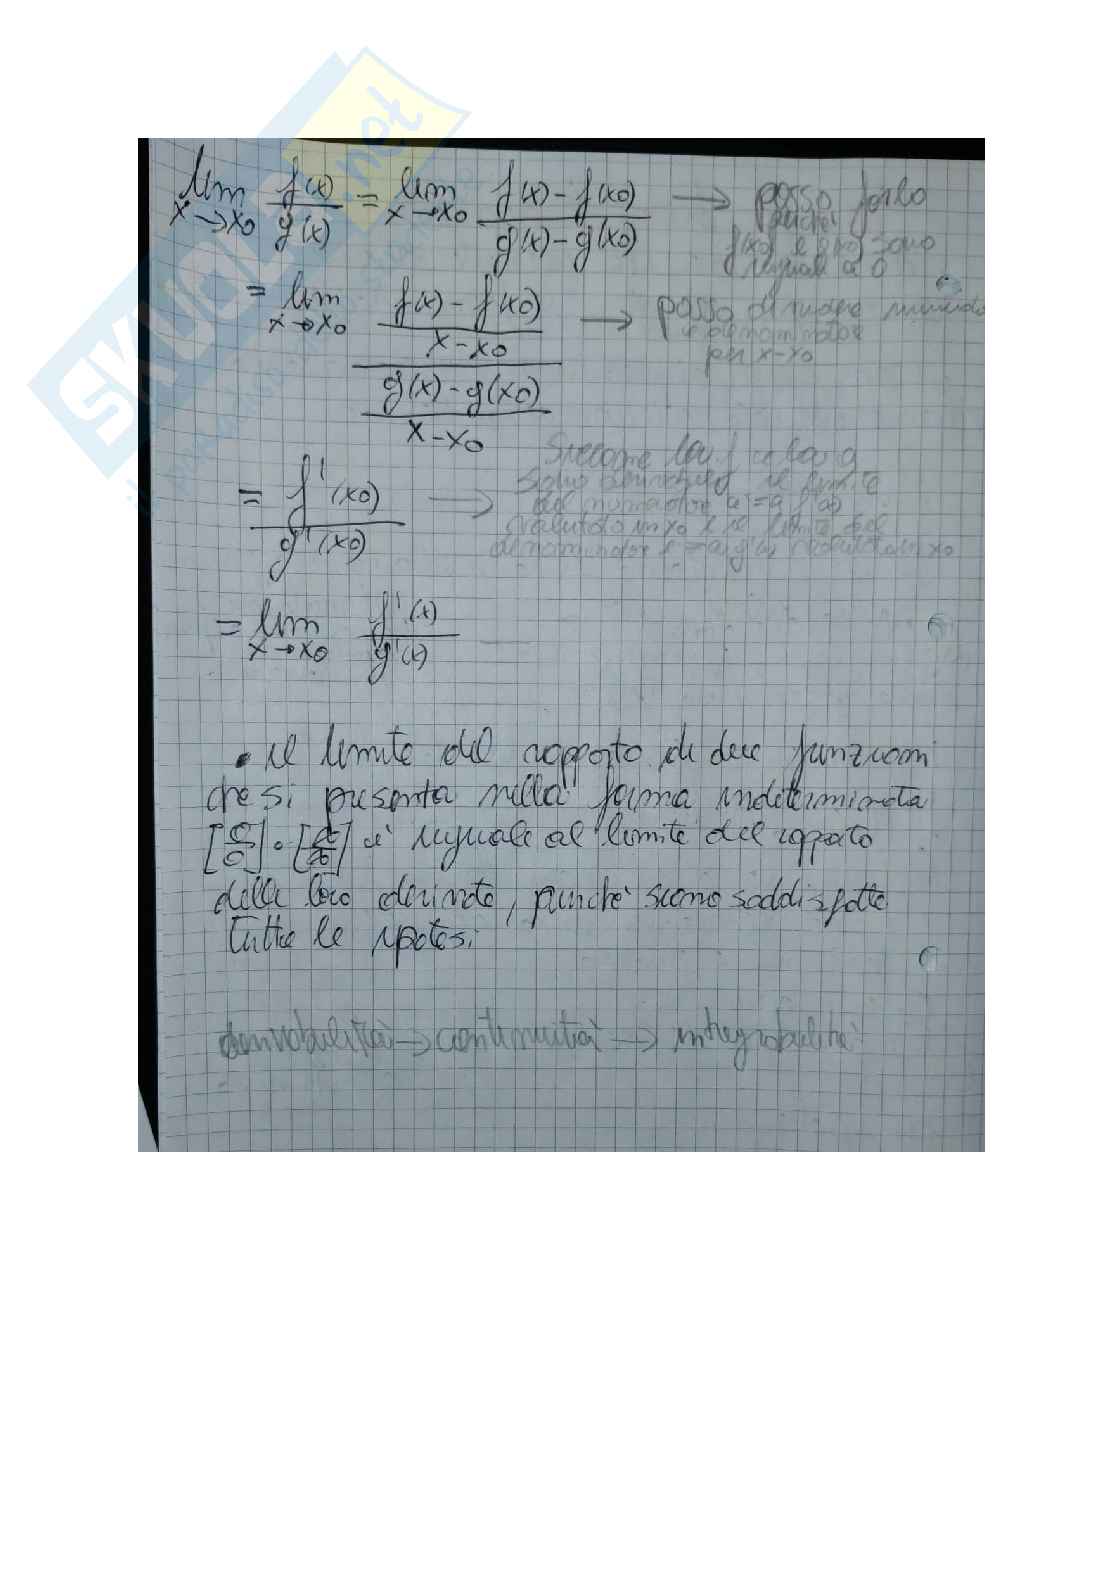 lim f(x)/g(x) = lim f(x)-f(x0)/g(x)-g(x0) → posso farlo
x→x0 x→x0
perché
f(x0) e g(x0) sono
uguali a 0
= lim f(x)-f(x0)/x-x0 / g(x)-g(x0)/x-x0 → posso dividere numerato
x→x0
e denominatore
per x-x0
= f'(x0)/g'(x0) →
Siccome la f e la g
sono derivabili il limite
del numeratore è = a f'(x)
valutato in x0 e il limite del
denominatore è = a g'(x) valutato in x0
= lim f'(x)/g'(x)
x→x0
• il limite del rapporto di due funzioni
che si presenta nella forma indeterminata
[0/0] o [∞/∞] è uguale al limite del rapporto
delle loro derivate, purché siano soddisfatte
tutte le ipotesi
derivabilità → continuità → integrabilità
SKUOLA.net